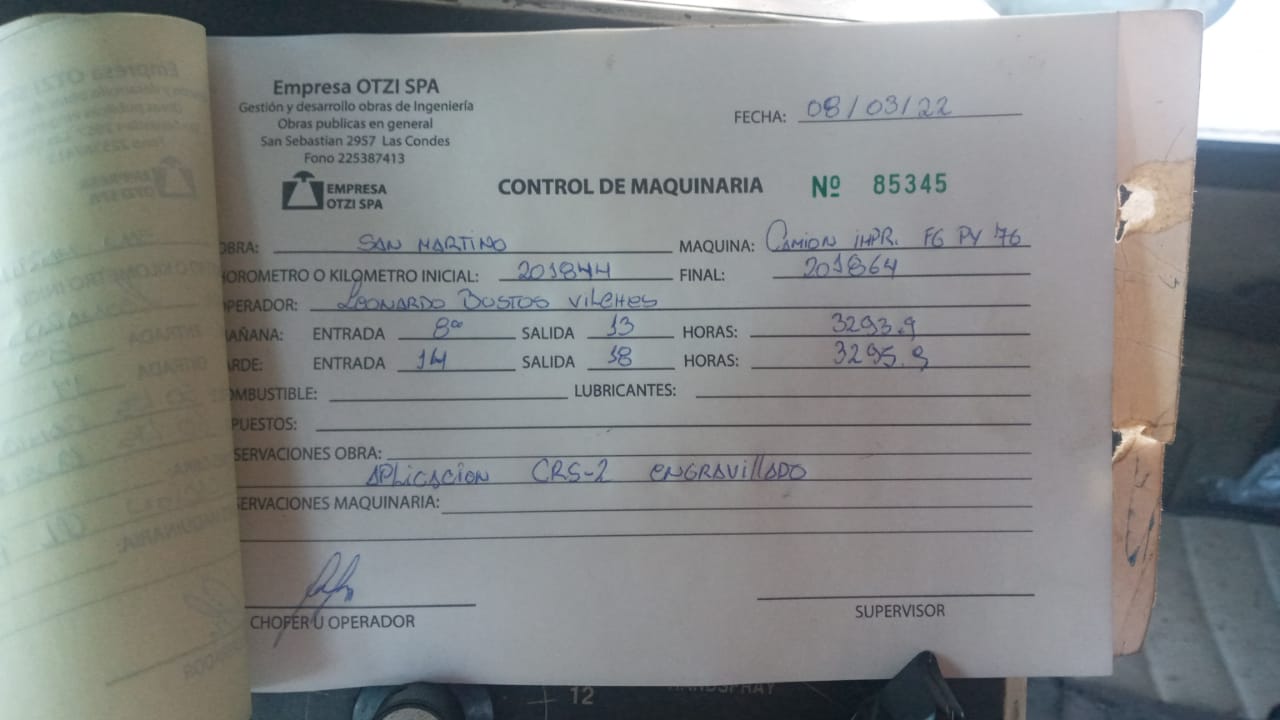 Empresa OTZI SPA
Gestión y desarrollo obras de Ingeniería
Obras publicas en general
San Sebastian 2957 Las Condes
Fono 225387413
EMPRESA
OTZI SPA
FECHA: 08/03/22
CONTROL DE MAQUINARIA Nº 85345
OBRA: SAN MARTINO MAQUINA: CAMION IMPR. FG PY 76
HOROMETRO O KILOMETRO INICIAL: 201844 FINAL: 201864
OPERADOR: LEONARDO BUSTOS VILCHES
MAÑANA: ENTRADA 8°° SALIDA 13 HORAS: 3293.9
TARDE: ENTRADA 14 SALIDA 18 HORAS: 3295.9
COMBUSTIBLE: LUBRICANTES:
PUESTOS:
SERVACIONES OBRA:
APLICACION CRS-2 ENGRAVILLADO
SERVACIONES MAQUINARIA:
CHOFER U OPERADOR
SUPERVISOR
12 HANDSPRAY